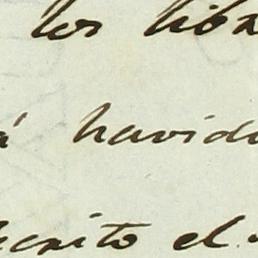 los libr
á havido
scrito el